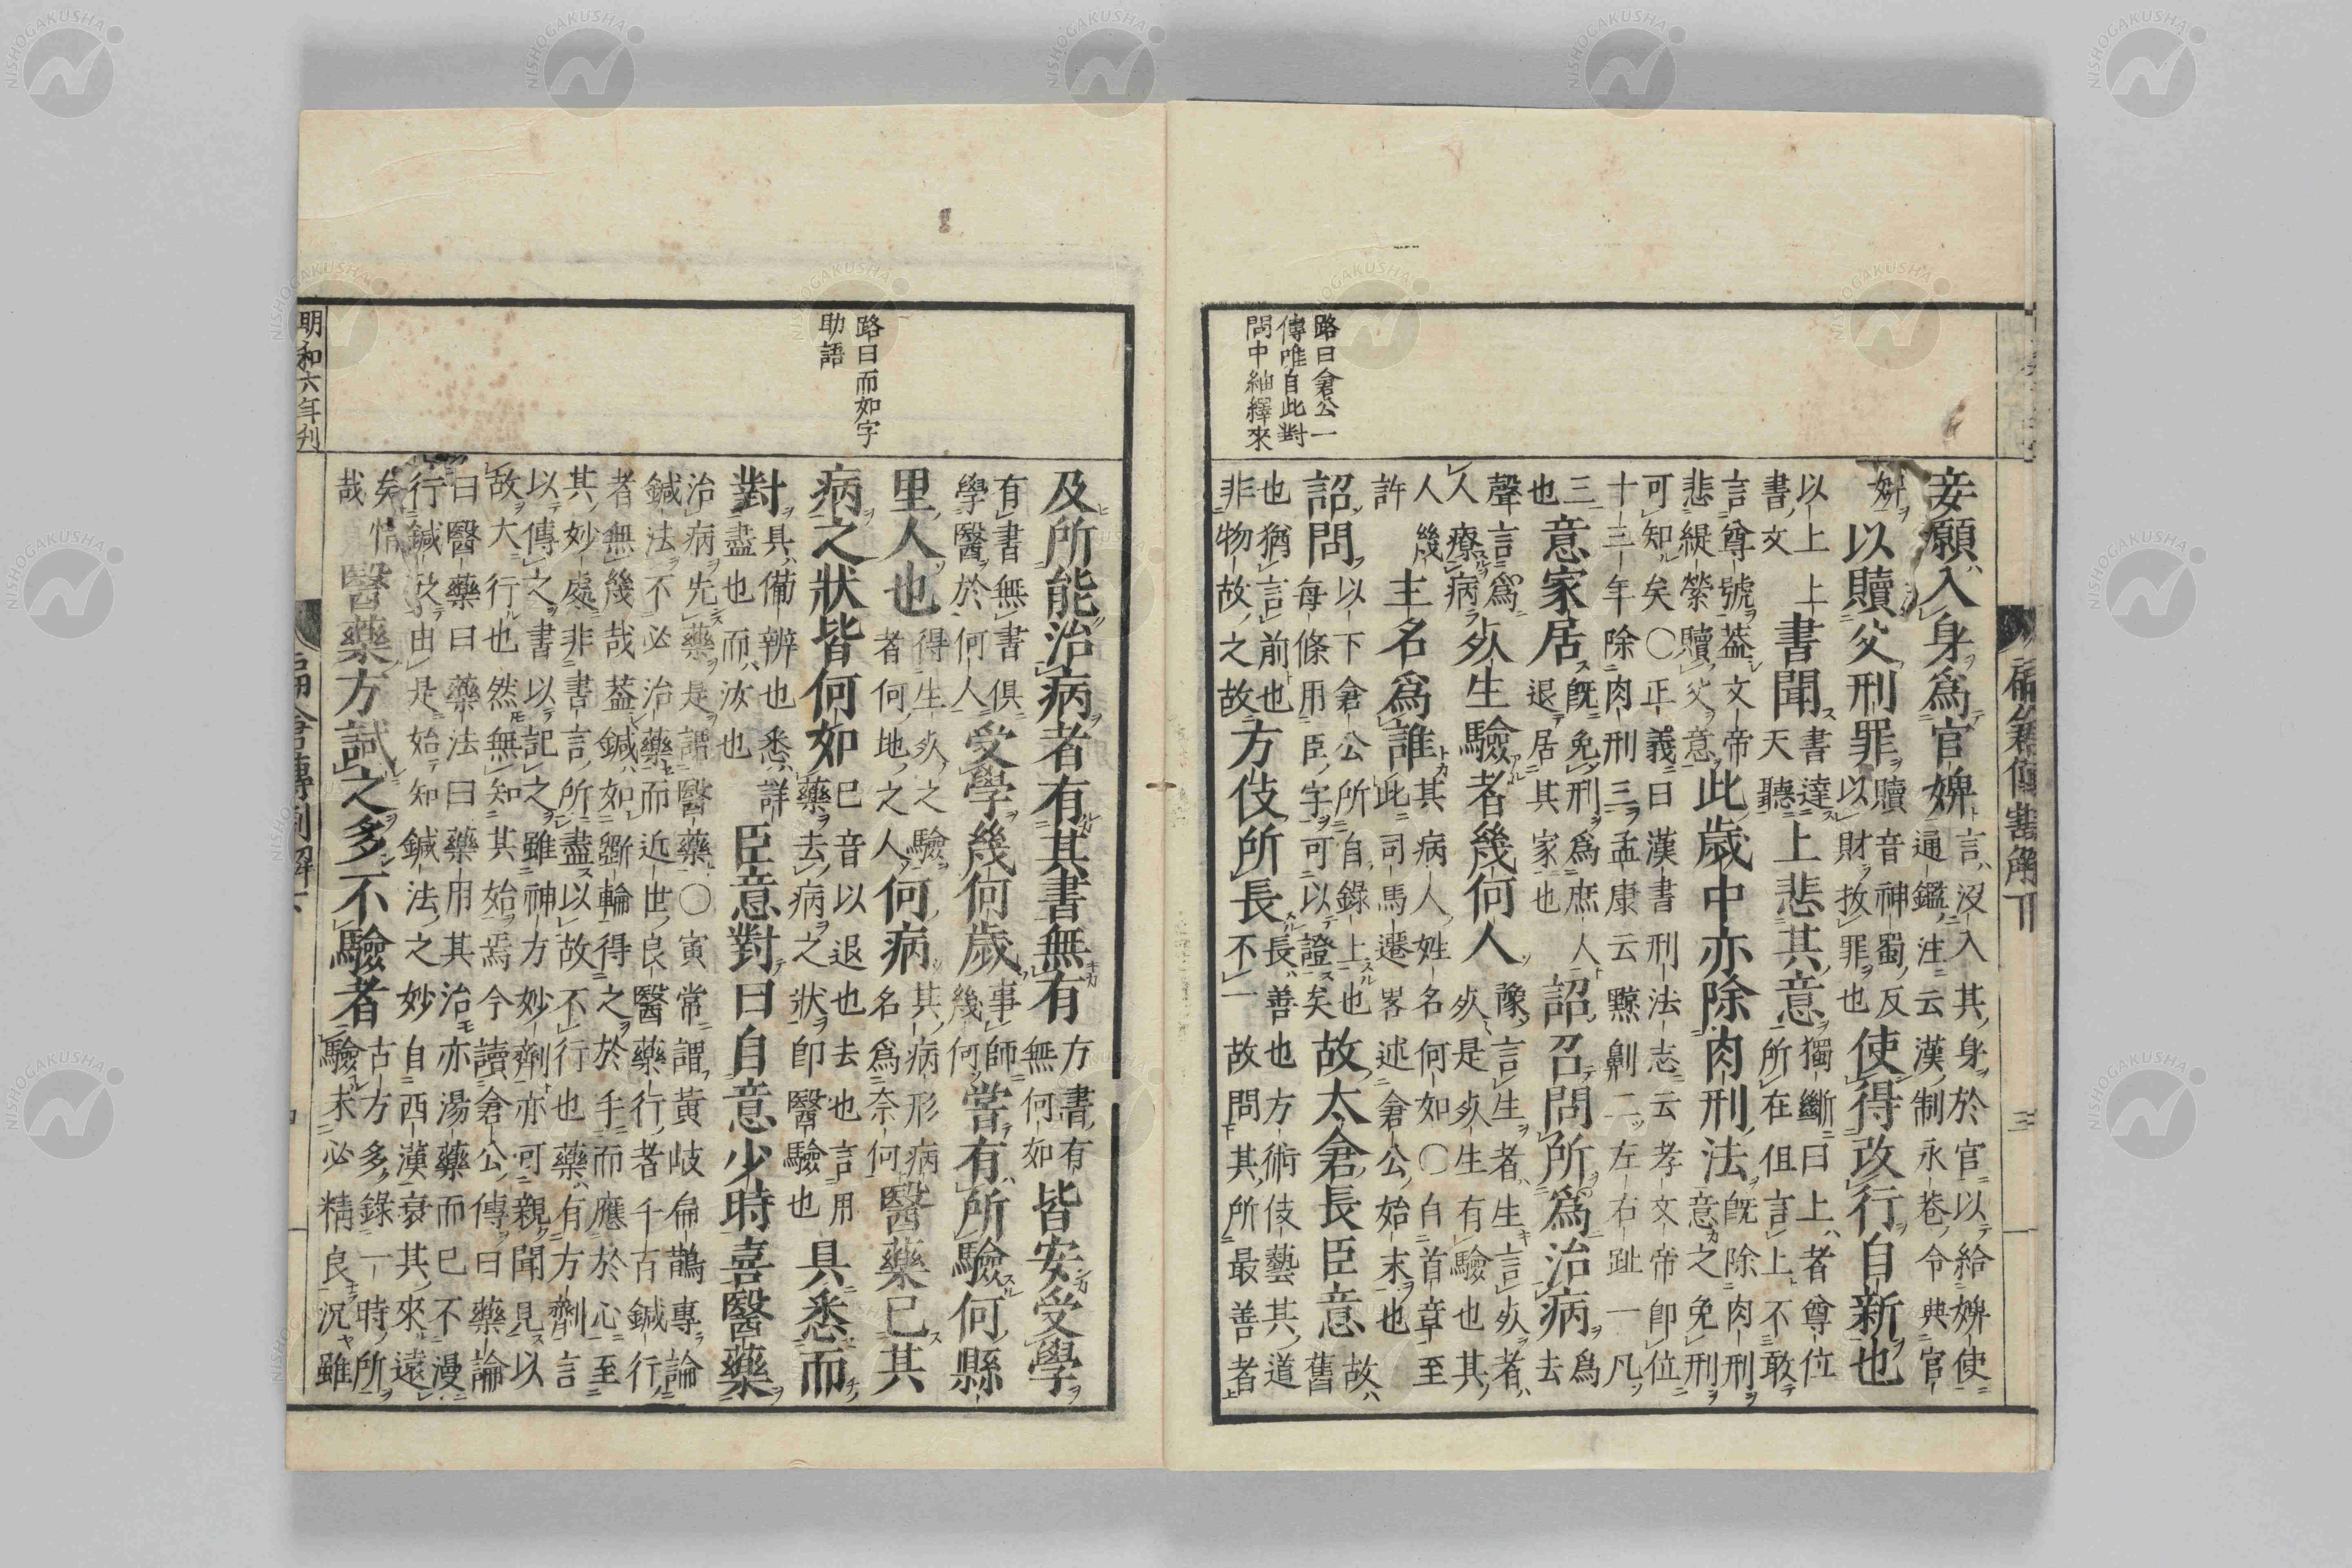 妾願入身爲官婢
言沒入其身於官以給婢使
通鑑注云漢制永巷令典官
婢
以贖父刑罪
贖音神蜀反
以財救罪也
使得改行自新也
以上
書文
上
書聞
書達
天聽
上悲其意
獨斷曰上者尊位
所在但言上不敢
言尊號蓋文帝
悲緹縈贖父意
此歲中亦除肉刑法
既除肉刑
意之免刑
可知矣〇正義曰漢書刑法志云孝文帝即位
十三年除肉刑三孟康云黥劓二左右趾一凡
三
也
意家居
既免刑爲庶人
退居其家也
詔召問所爲治病
爲
去
聲言爲
人療病
死生驗者幾何人
豫言生者生言死者
死是死生有驗也其
人幾
許
主名爲誰
其病人姓名何如〇自首章至
此司馬遷畧述倉公始末也
路曰倉公一
傳唯自此對
問中紬繹來
詔問
以下倉公所自錄上也
每條用臣字可以證矣
故太倉長臣意
故
舊
也猶言前也
非物故之故
方伎所長
長善也方術伎藝其道
不一故問其所最善者
及所能治病者有其書無有
方書有
無何如
皆安受學
有書無書俱
學醫於何人
受學幾何歲
事師
幾何
嘗有所驗何縣
里人也
得生死之驗
者何地之人
何病
其病形病
名爲奈何
醫藥已其
路曰而如字
助語
病之狀皆何如
已音以退也去也言用
藥去病之狀即醫驗也
具悉而
對
具備辨也悉詳
盡也而汝也
臣意對曰自意少時喜醫藥
治病先藥是謂醫藥〇寅常謂黃岐扁鵲專論
鍼法不必治藥而近世良醫藥行者千古鍼行
者無幾哉蓋鍼如斲輪得之於手而應於心至
其妙處非書言所盡以故不行也藥有方劑言
以傳之書以記之雖神方妙劑亦可親聞見以
故大行也然無知其始焉今讀倉公傳曰藥論
曰醫藥曰藥法曰藥用其治亦湯藥而已不漫
行鍼灸由是始知鍼法之妙自西漢衰其來遠
矣惜
哉
醫藥方試之多不驗者
古方多錄一時所
驗末必精良沉雖
明和六年刋